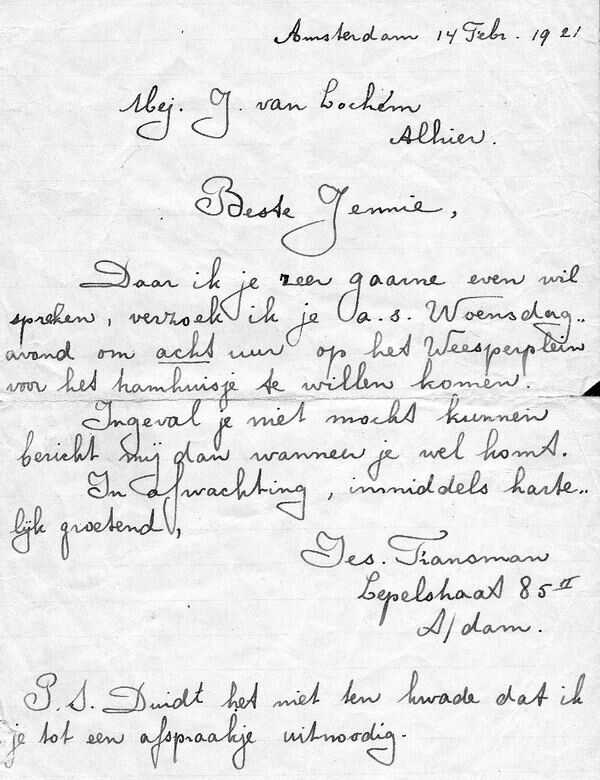 Amsterdam 14 Febr. 1921
Mej. J. van Lochem
Alhier.
Beste Jennie,
Daar ik je zeer gaarne even wil
spreken, verzoek ik je a.s. Woensdag..
avond om acht uur op het Weesperplein
voor het tramhuisje te willen komen.
Ingeval je niet mocht kunnen
bericht mij dan wanneer je wel komt.
In afwachting, inmiddels harte..
lijk groetend,
Jes. Fransman
Lepelstraat 85 II
A/dam.
P.S. Duidt het niet ten kwade dat ik
je tot een afspraakje uitnoodig.